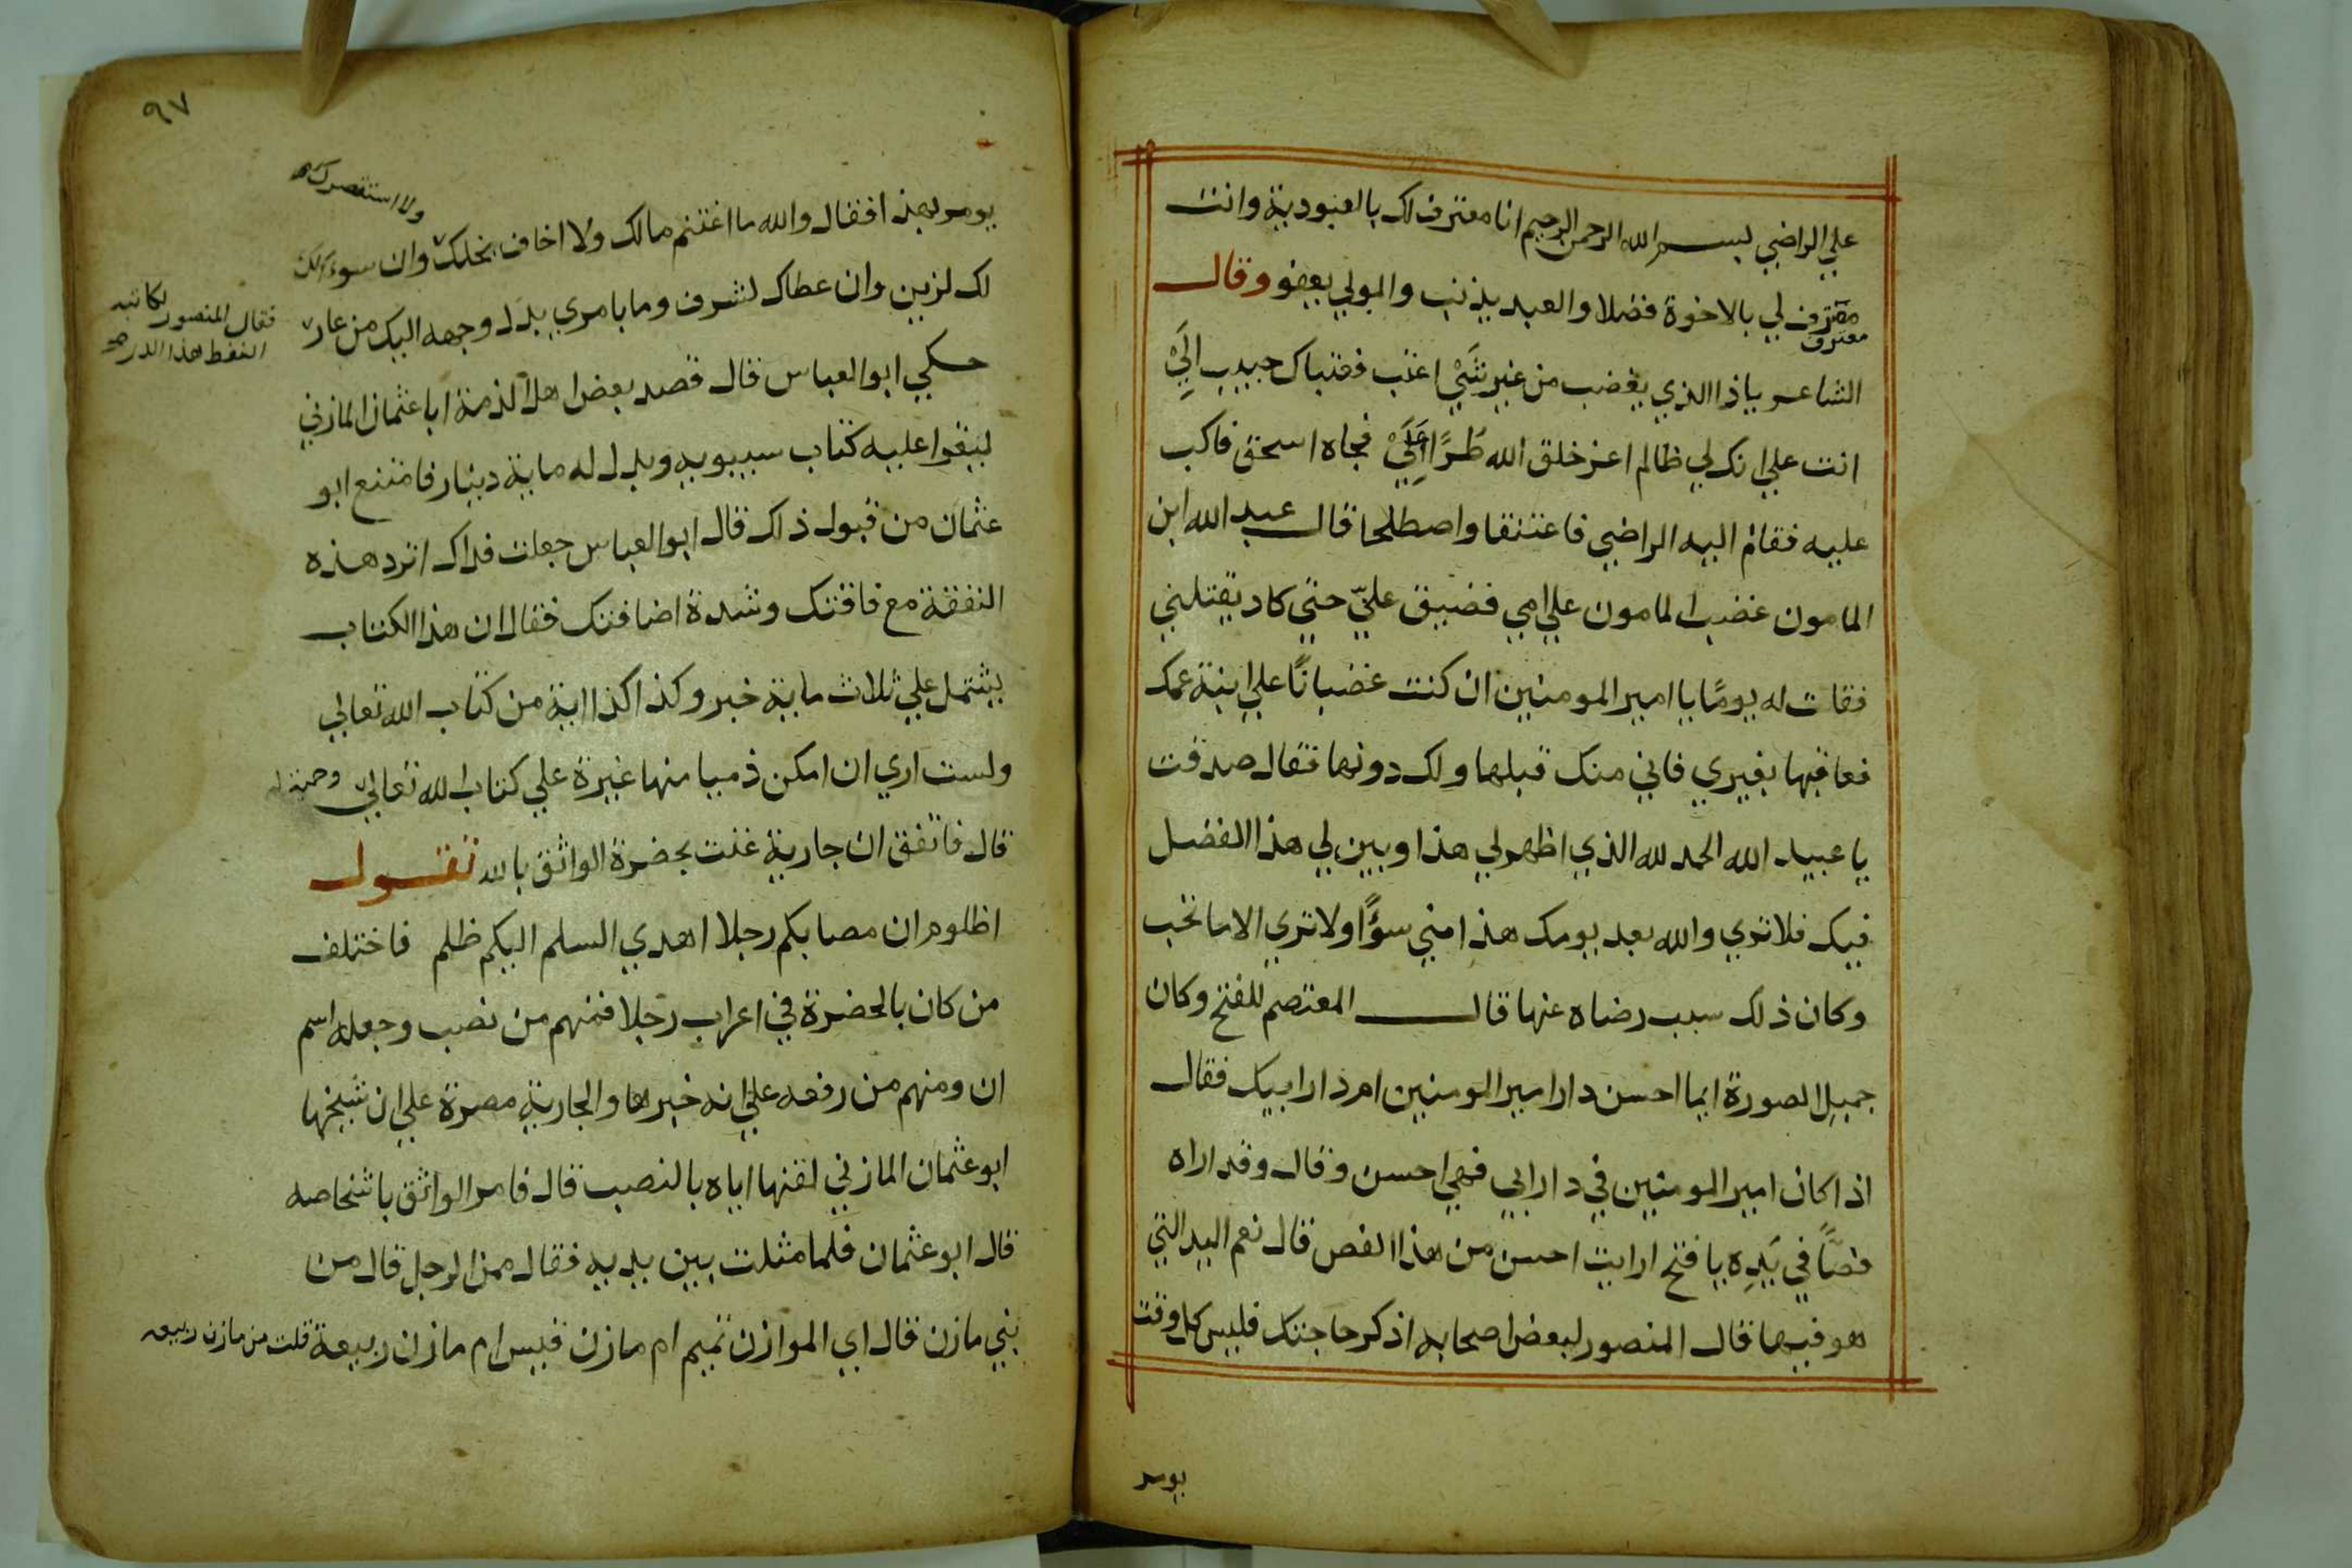 علي الراضي بسم الله الرحمن الرحيم انا معترف لك بالعبودية وانت
معترف لي بالاخوة فضلا والعبد يذنب والمولي يعفو وقال
معترف
الشاعر ياذا الذي يغضب من غير شَيْ اعتب فعتباك حبيب اليَّ
انت علي انك لي ظالم اعز خلق الله طُرًّا عَلَيْ فجاه اسحق فاكب
عليه فقام اليه الراضي فاعتنقا واصطلحا قال عبد الله ابن
المامون غضب المامون علي امي فضيق عليّ حتي كاد يقتلني
فقلت له يومًا يا امير المومنين ان كنت غضبانًا علي ابنة عمك
فعاقبها بغيري فاني منك قبلها ولك دونها فقال صدقت
يا عبيد الله الحمد لله الذي اظهر لي هذا وبين لي هذا الفضل
فيك فلا تري والله بعد يومك هذا مني سوًا ولا تري الا ما تحب
وكان ذلك سبب رضاه عنها قال المعتصم للفتح وكان
جميل الصورة ايما احسن دار امير المومنين ام دار ابيك فقال
اذا كان امير المومنين في دار ابي فهي احسن وقال وقد اراه
فصًّا في يَدِه يا فتح ارايت احسن من هذا الفص قال نعم اليد التي
هو فيها قال المنصور لبعض اصحابه اذكر حاجتك فليس كل وقت
يومر
٩٧
ولا استقصر
يومر بهذا فقال والله ما اغتنم مالك ولا اخاف بخلك وان سوءلك
لك لزين وان عطاك لشرف وما بامري بذل وجهه اليك من عار
فقال المنصور لكاتبه
القط هذا الدر صح
حكي ابو العباس قال قصد بعض اهل الذمة ابا عثمان المازني
ليقرا عليه كتاب سيبويه وبذل له ماية دينار فامتنع ابو
عثمان من قبول ذاك قال ابو العباس جعلت فداك اترد هذه
النفقة مع فاقتك وشدة اضافتك فقال ان هذا الكتاب
يشتمل علي ثلاث ماية خبر وكذا كذا اية من كتاب الله تعالي
ولست اري ان امكن ذميا منها غيرة علي كتاب الله تعالي وحمية له
قال فاتفق ان جارية غنت بحضرة الواثق بالله تقول
اظلوم ان مصابكم رجلا اهدي السلم اليكم ظلم فاختلف
من كان بالحضرة في اعراب رجلا فمنهم من نصب وجعله اسم
ان ومنهم من رفعه علي انه خبرها والجارية مصرة علي ان شيخها
ابو عثمان المازني لقنها اياه بالنصب قال فامر الواثق باشخاصه
قال ابو عثمان فلما مثلت بين يديه فقال ممن الرجل قال من
بني مازن قال اي الموازن تميم ام مازن قيس ام مازن ربيعة قلت من مازن ربيعه